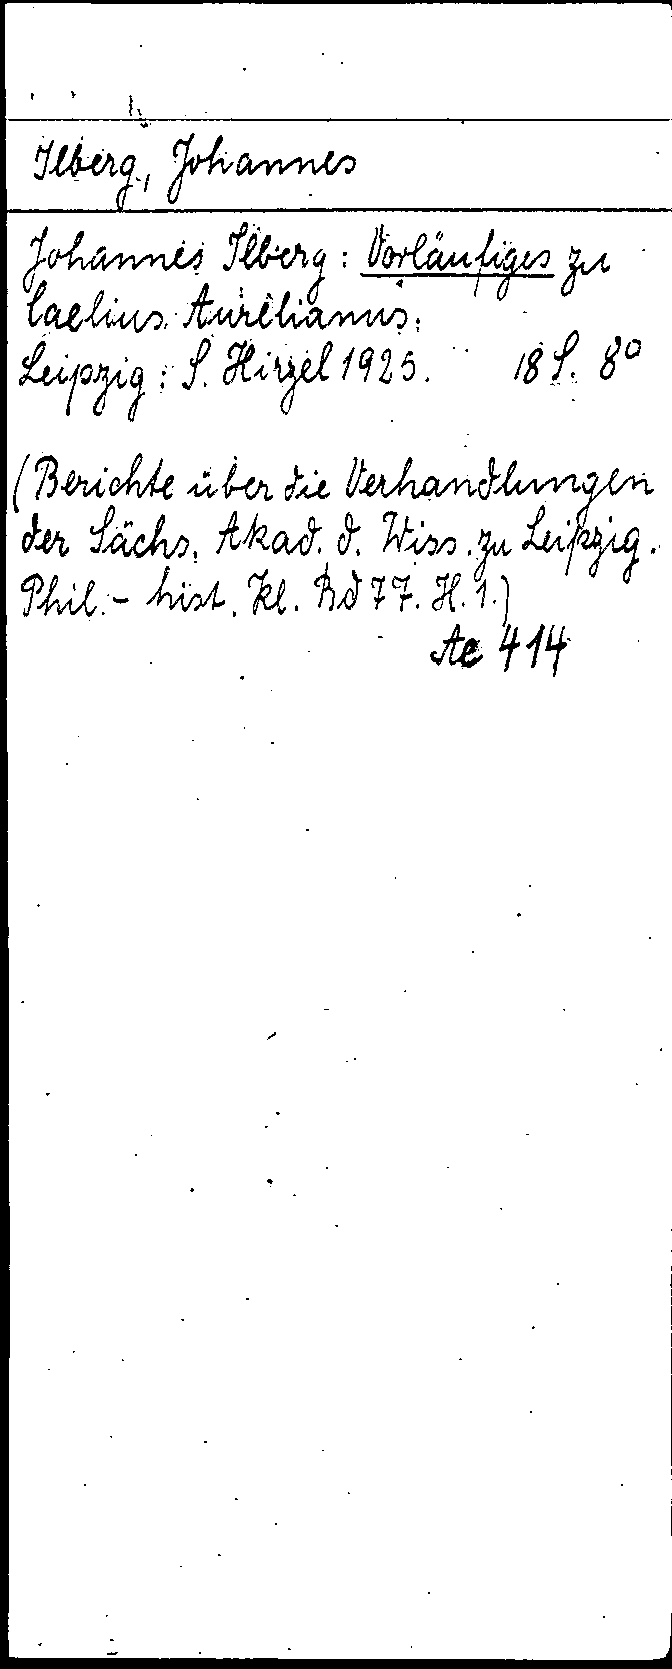 Ilberg, Johannes
Johannes Ilberg: Vorläufiges zu
Caelius Aurelianus.
Leipzig: S. Hirzel 1925. 18 S. 8°
(Berichte über die Verhandlungen
der Sächs. Akad. d. Wiss. zu Leipzig.
Phil.- hist. Kl. Bd 77. H. 1.)
Ae 414